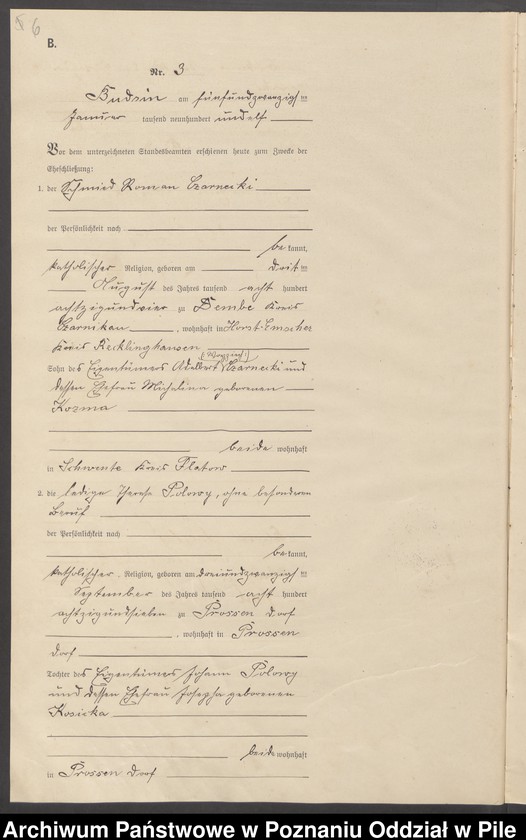 6
B.
Nr. 3
Budsin am fünfundzwanzigsten
Januar tausend neunhundert und elf
Vor dem unterzeichneten Standesbeamten erschienen heute zum Zwecke der
Eheschließung:
1. der Schmied Roman Czarnecki
der Persönlichkeit nach
bekannt,
katholischer Religion, geboren am drit ten
August des Jahres tausend acht hundert
achtzigundvier zu Dembe Kreis
Czarnikau, wohnhaft in Horst-Emscher
Kreis Recklinghausen
(:Woyciech:)
Sohn des Eigentümers Adelbert Czarnecki und
dessen Ehefrau Michalina geborenen
Kozma
beide wohnhaft
in Schwente Kreis Flatow
2. die ledige Therese Polowy, ohne besonderen
Beruf
der Persönlichkeit nach
bekannt,
katholischer Religion, geboren am dreiundzwanzigsten
September des Jahres tausend acht hundert
achtzigundsieben zu Prossen Dorf
, wohnhaft in Prossen
Dorf
Tochter des Eigentümers Johann Polowy
und dessen Ehefrau Josepha geborenen
Kosicka
beide wohnhaft
in Prossen Dorf
Archiwum Państwowe w Poznaniu Oddział w Pile